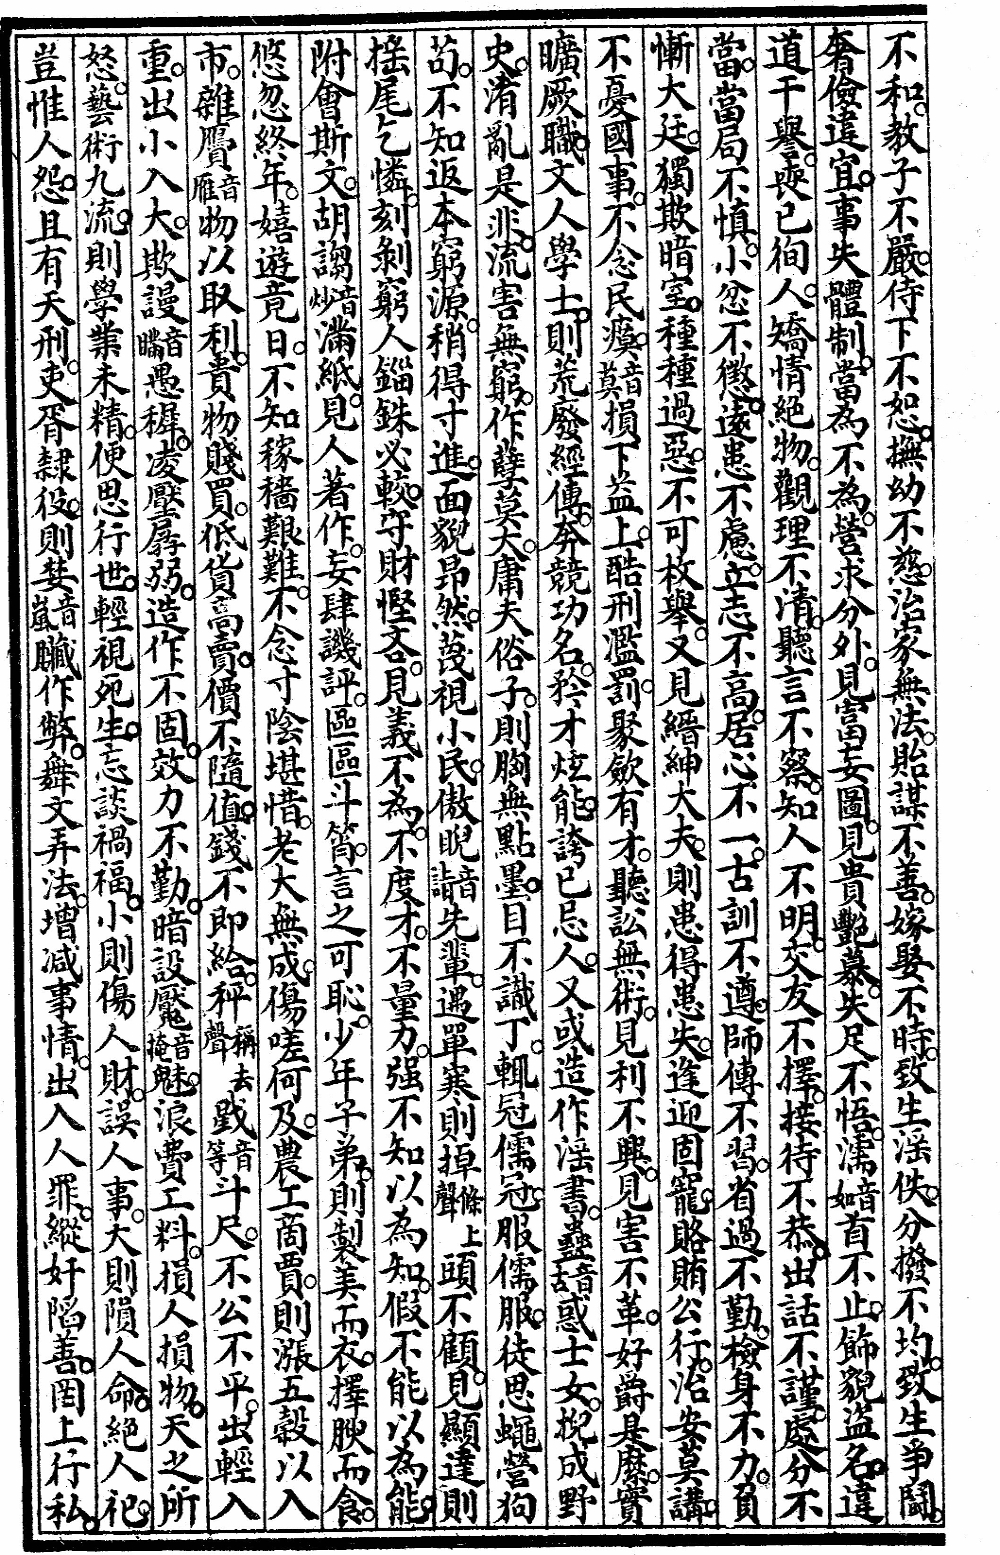 不和。教子不嚴。侍下不恕。撫幼不慈。治家無法。貽謀不善。嫁娶不時。致生淫佚。分撥不均。致生爭鬪。
奢儉違宜。事失體制。當為不為。營求分外。見富妄圖。見貴艷慕。失足不悟。濡音如首不止。飾貌盜名。違
道干譽。喪已徇人。矯情絕物。觀理不清。聽言不察。知人不明。交友不擇。接待不恭。出話不謹。處分不
當。當局不慎。小忿不懲。遠患不慮。立志不高。居心不一。古訓不遵。師傳不習。省過不勤。檢身不力。負
慚大廷。獨欺暗室。種種過惡。不可枚舉。又見縉紳大夫。則患得患失。逢迎固寵。賂賄公行。治安莫講。
不憂國事。不念民瘼。音莫損下益上。酷刑濫罰。聚歛有才。聽訟無術。見利不興。見害不革。好爵是縻。實
曠厥職。文人學士。則荒廢經傳。奔競功名。矜才炫能。誇已忌人。又或造作淫書。蠱音古惑士女。挽成野
史。淆亂是非。流害無窮。作孽莫大。庸夫俗子。則胸無點墨。目不識丁。輒冠儒冠。服儒服。徒思蠅營狗
苟。不知返本窮源。稍得寸進。面貌昂然。藐視小民。傲睨音詣先輩。遇單寒則掉條上聲頭不顧。見顯達則
搖尾乞憐。刻剝窮人。錙銖必較。守財慳吝。見義不為。不度才。不量力。强不知以為知。假不能以為能。
附會斯文。胡謅音炒滿紙。見人著作。妄肆譏評。區區斗筲。言之可恥。少年子弟。則製美而衣。擇腴而食。
悠忽終年。嬉遊竟日。不知稼穡艱難。不念寸陰堪惜。老大無成。傷嗟何及。農工商賈。則漲五穀以入
市。雜贋音雁物以取利。貴物賤買。低貨高賣。價不隨值。錢不即給。秤稱去聲戥音等斗尺。不公不平。出輕入
重。出小入大。欺謾音瞞愚穉。凌壓孱弱。造作不固。效力不勤。暗設魘音掩魅。浪費工料。損人損物。天之所
怒。藝術九流。則學業未精。便思行世。輕視死生。忘談禍福。小則傷人財。誤人事。大則隕人命。絕人祀。
豈惟人怨。且有天刑。吏胥隸役。則婪音嵐贓作弊。舞文弄法。增减事情。出入人罪。縱奸陷善。罔上行私。